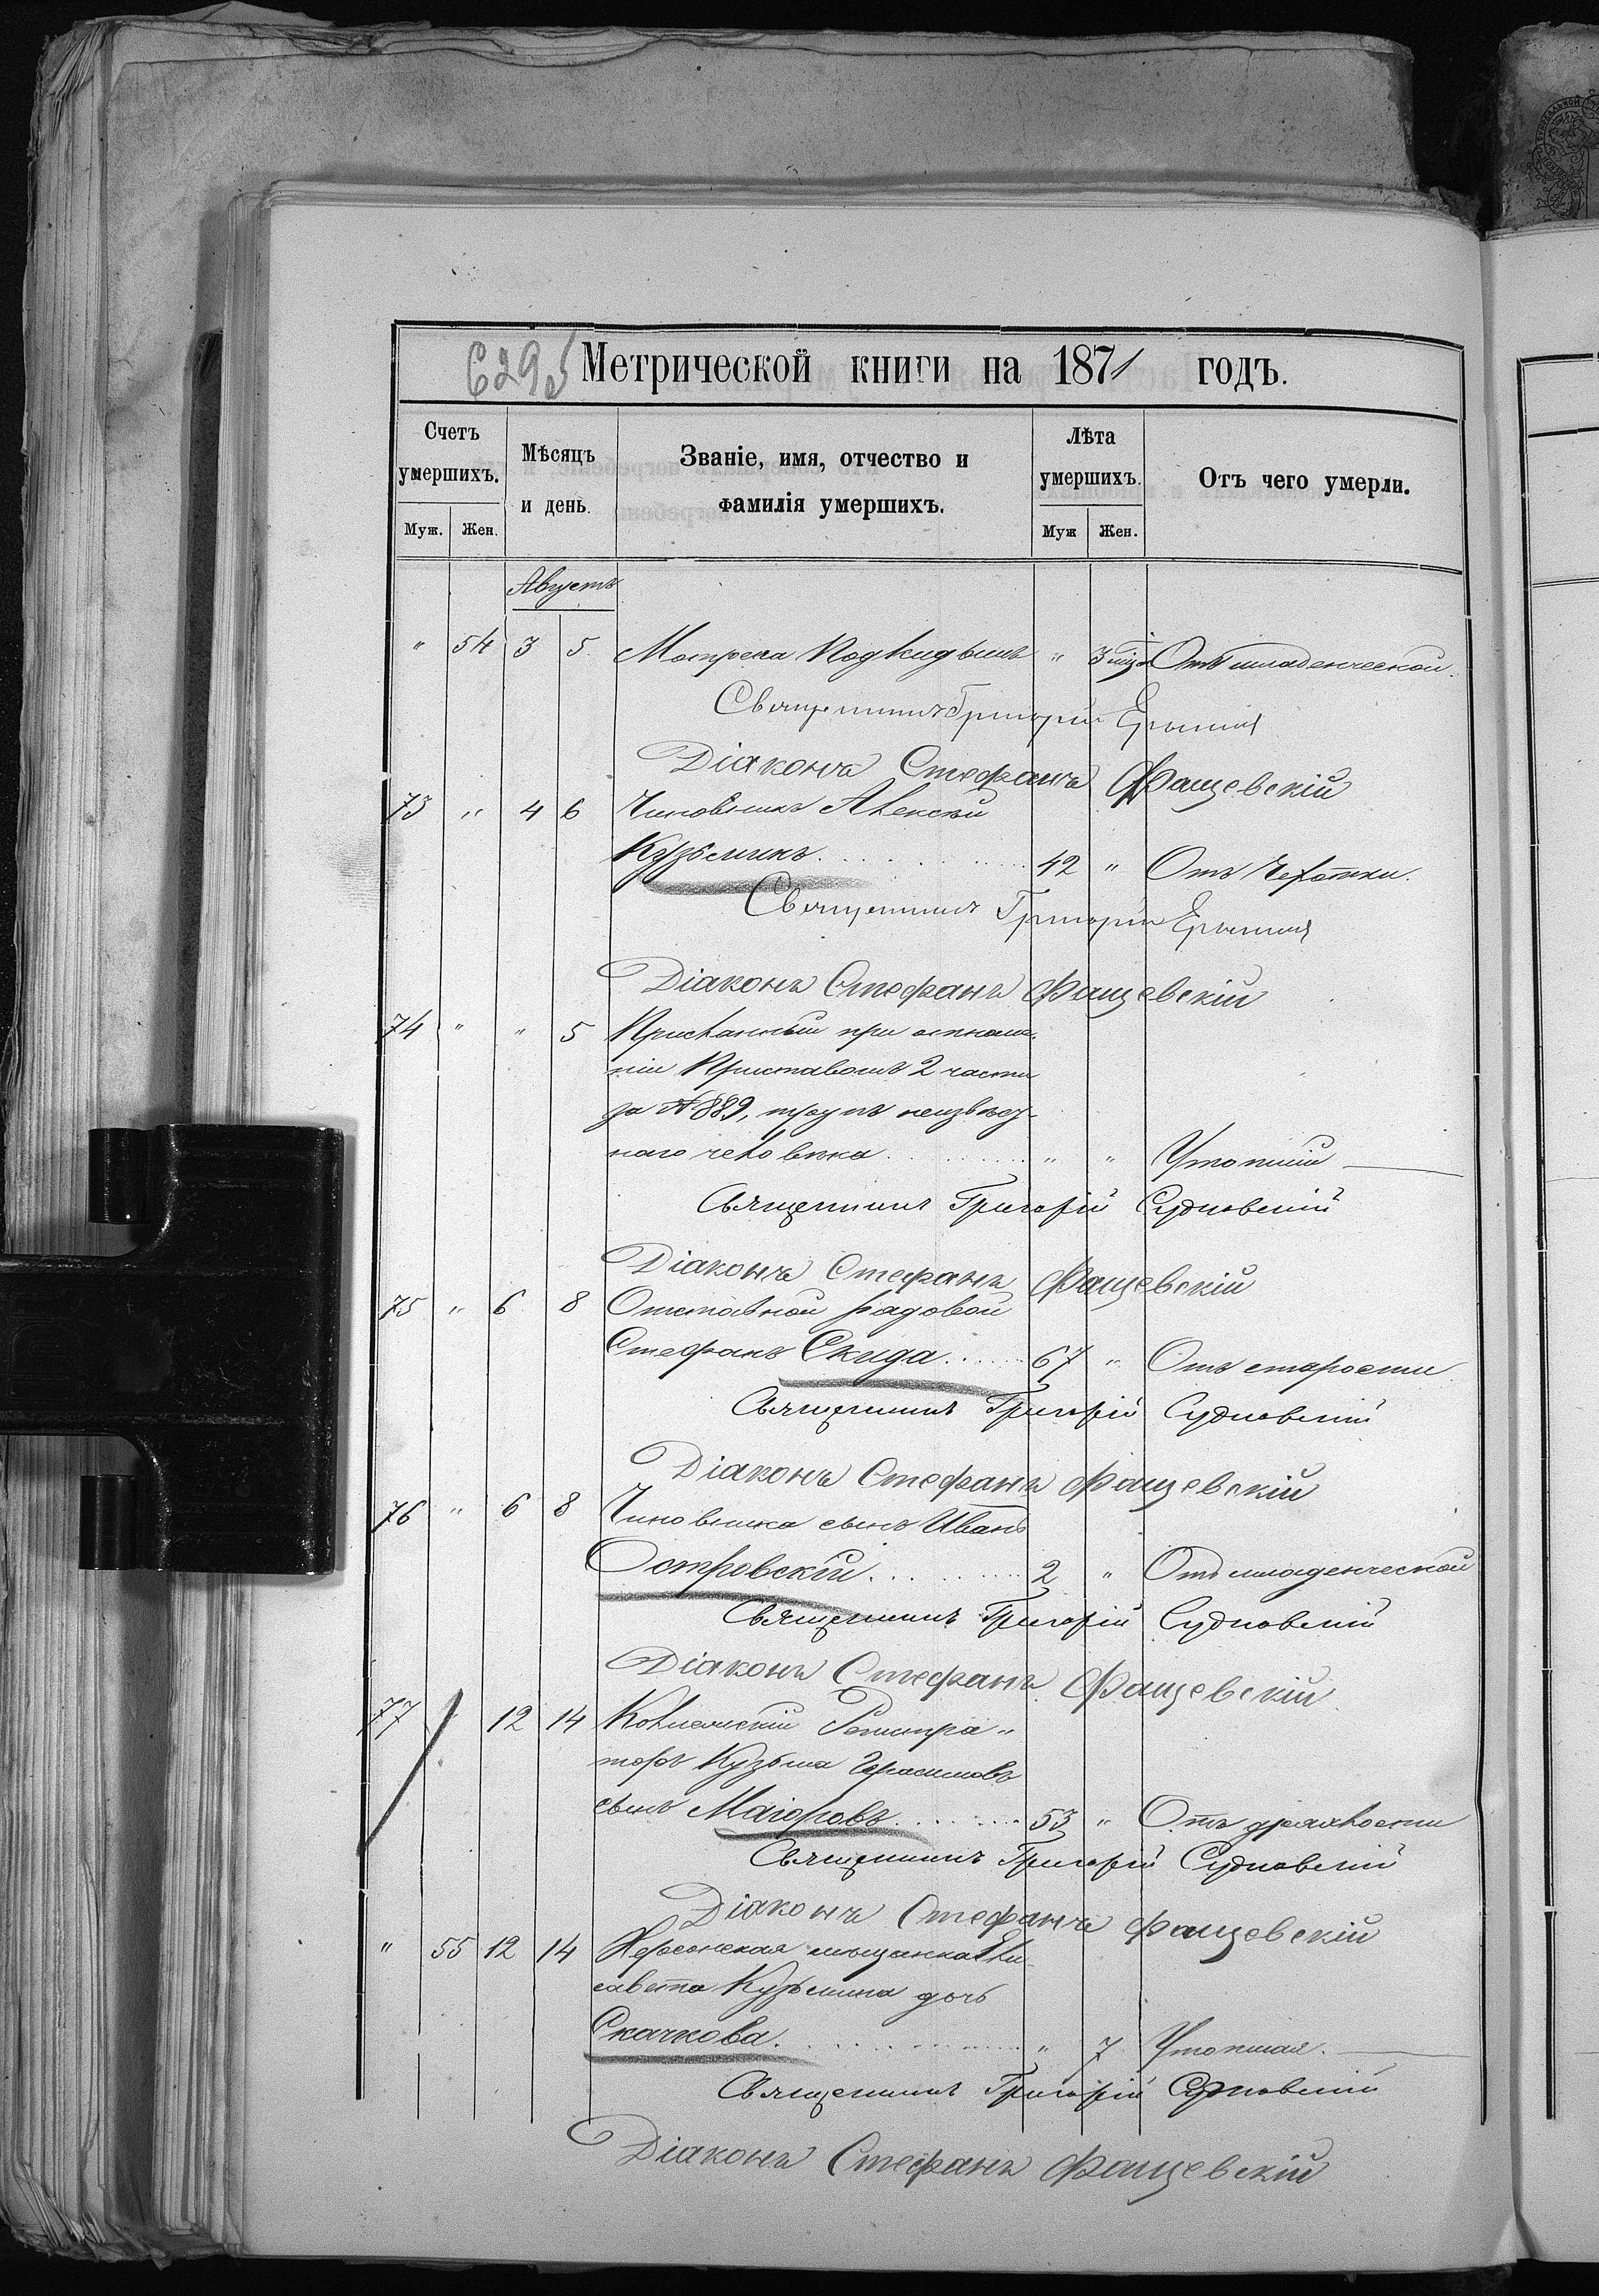 629
Метрической книги на 1871 годъ.
Счетъ умершихъ.
Муж. Жен.
Мѣсяцъ и день.
Званіе, имя, отчество и фамилія умершихъ.
Лѣта умершихъ.
Муж Жен.
Отъ чего умерли.
Августъ
" 54 3 5 Мотрена " 3 Отъ младенческой.
Священникъ Григорій
Діаконъ Стефанъ Фащевскій
73 " 4 6 Чиновникъ Алексѣй
Кузьминъ 42 " Отъ Чахотки.
Священникъ Григорій
Діаконъ Стефанъ Фащевскій
74 " " 5 Присланный при отноше-
ніи Приставомъ 2 части
за № 889, трупъ неизвѣст-
наго человѣка " " Утопшій
Священникъ Григорій Судковскій
Діаконъ Стефанъ Фащевскій
75 " 6 8 Отставной рядовой
Стефанъ Скида 67 " Отъ старости
Священникъ Григорій Судковскій
Діаконъ Стефанъ Фащевскій
76 " 6 8 Чиновника сынъ Иванъ
Островскій 2 " Отъ младенческой
Священникъ Григорій Судковскій
Діаконъ Стефанъ Фащевскій
77 12 14 Коллежскій Регистра-
торъ Кузьма Герасимовъ
сынъ Маіоровъ 53 " Отъ дряхлости
Священникъ Григорій Судковскій
Діаконъ Стефанъ Фащевскій
" 55 12 14 Херсонская мѣщанка Ели-
савета Кузьмина дочь
Скачкова " 7 Утопшая.
Священникъ Григорій Судковскій
Діаконъ Стефанъ Фащевскій